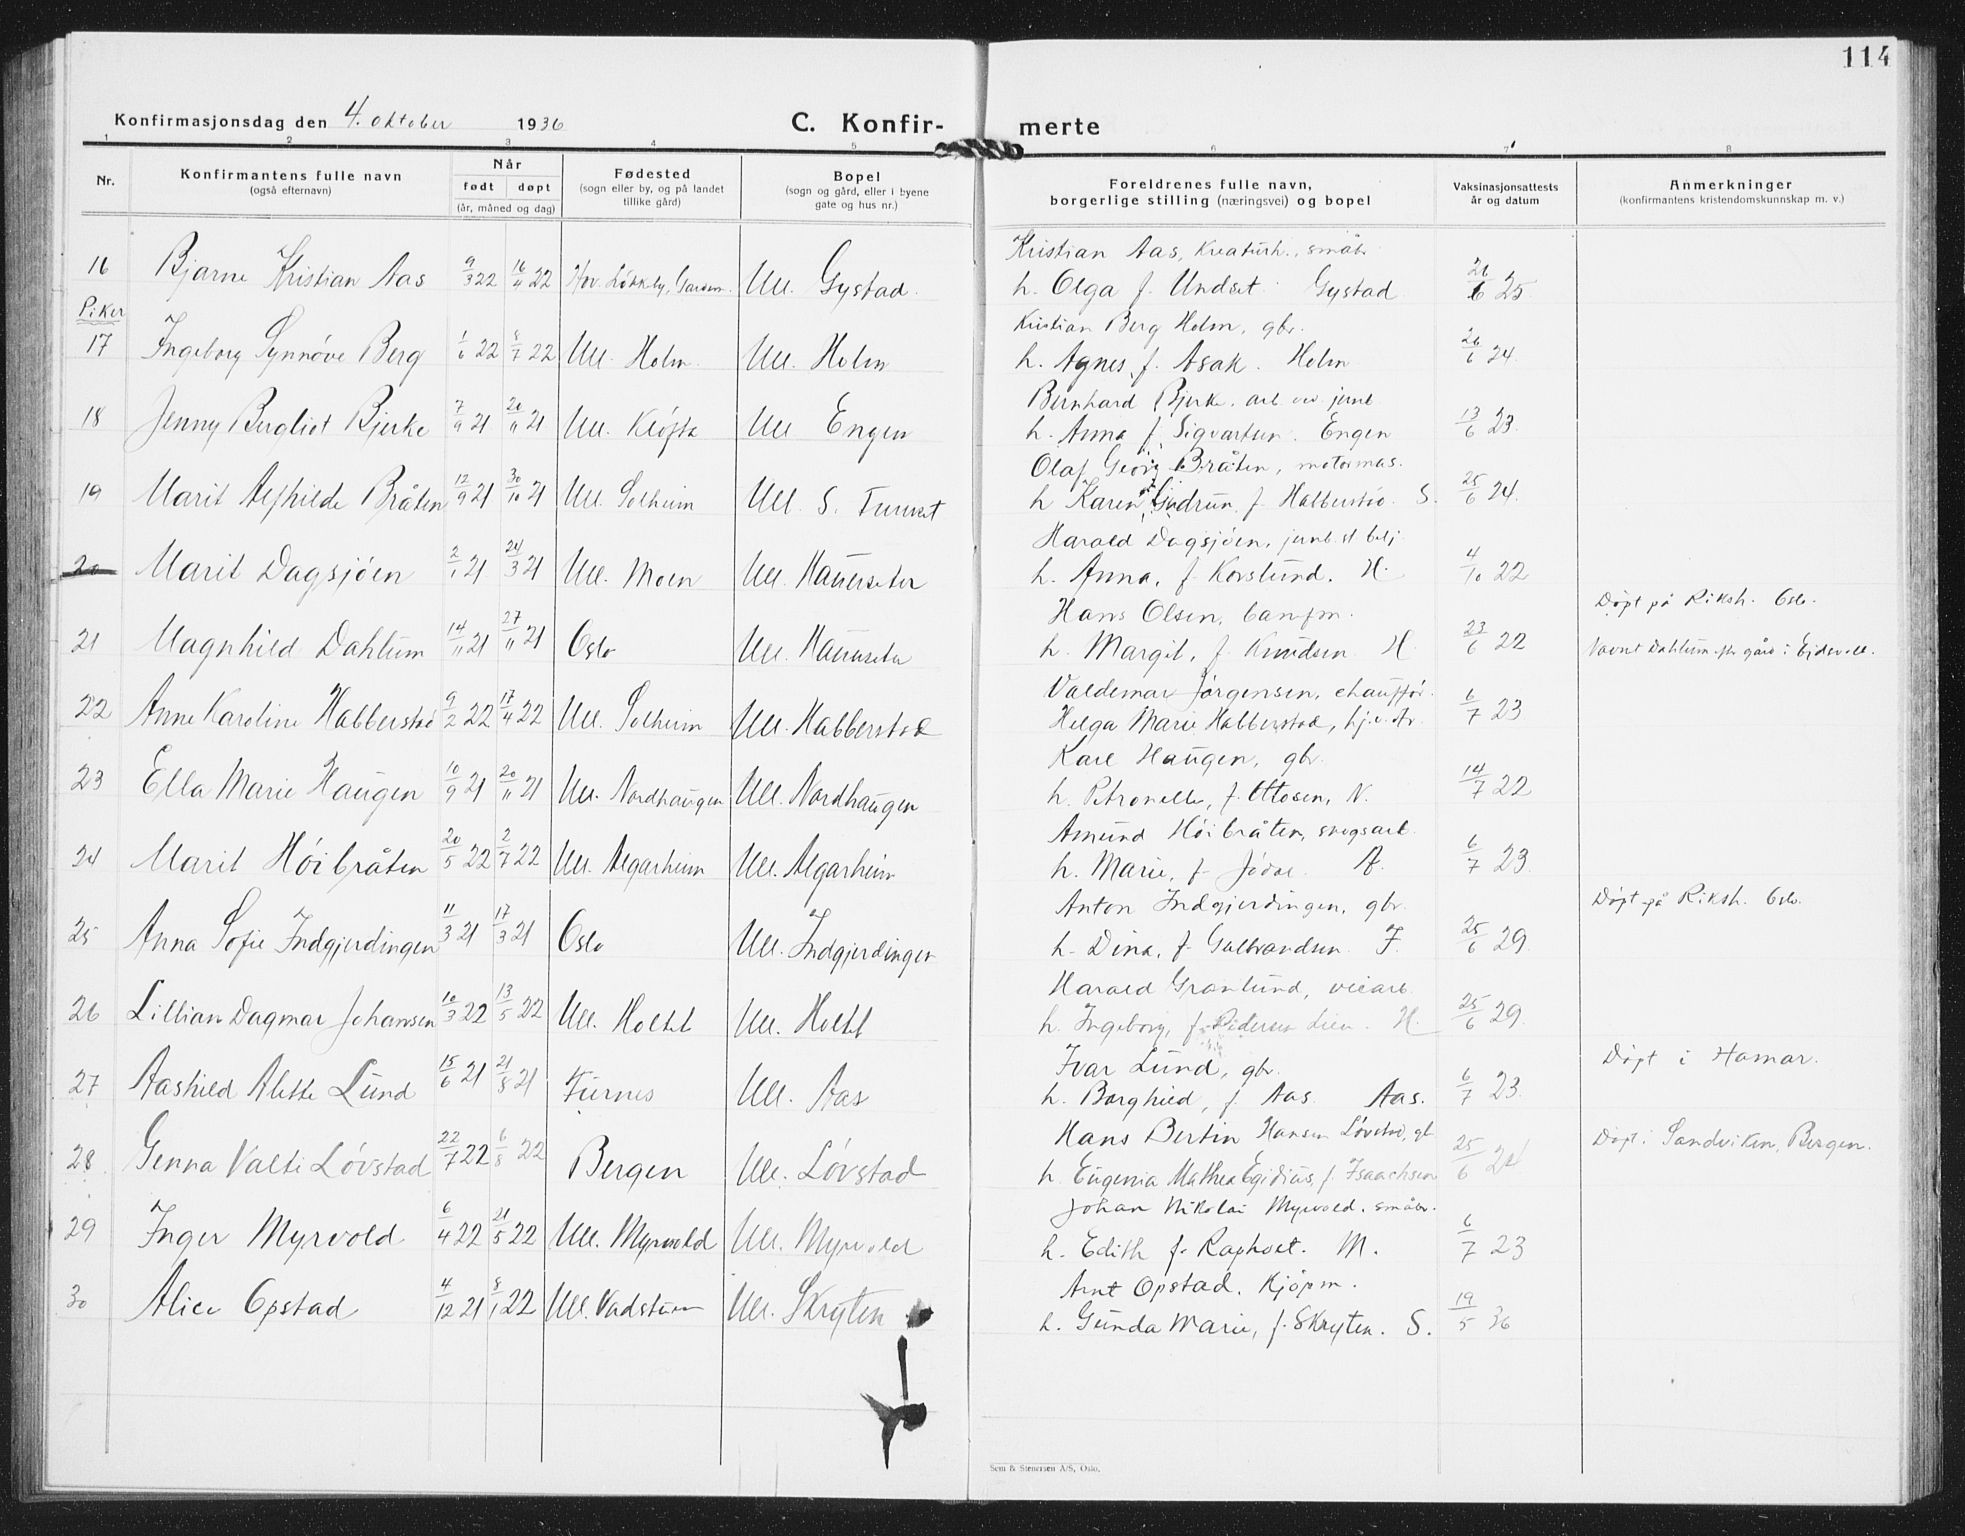 114
Konfirmasjonsdag den 4. oktober 1936
C. Konfir-merte
1 2 3 4 5 6 7 8
Nr.
Konfirmantens fulle navn
(også efternavn)
Når
født døpt
(år, måned og dag)
Fødested
(sogn eller by, og på landet
tillike gård)
Bopel
(sogn og gård, eller i byene
gate og hus nr.)
Foreldrenes fulle navn,
borgerlige stilling (næringsvei) og bopel
Vaksinasjonsattests
år og datum
Anmerkninger
(konfirmantens kristendomskunnskap m. v.)
Kristian Aas, Kreaturh., småbr.
16 Bjarne Kristian Aas 9/3 22 16/4 22 Hov. Ull. Gystad h. Olga f. Undset Gystad 25
Piker
Kristian Berg Holm, gbr.
17 Ingeborg Synnøve Berg 1/6 22 8/7 22 Ull. Holm Ull. Holm h. Agnes, f. Asak. Holm 26/6 24
Bernhard Bjerke, arb. ved jernb.
18 Jenny Bergliot Bjerke 7/9 21 20/11 21 Ull. Kløfta Ull Engen h. Anna f. Sigvartsen. Engen 13/6 23.
Olaf Georg Bråten, motormas.
19 Marit Alfhilde Bråten 12/9 21 30/10 21 Ull. Solheim Ull. S. Furuset h Karen Gudrun, f. Habberstad. S. 25/6 24.
Harald Dagsjøen, jernb.st betj.
20 Marit Dagsjöen 2/1 21 24/3 21 Ull. Moen Ull. Hauerseter h. Anna, f. Korslund. H. 4/10 22
Hans Olsen, banfm. Døpt på Riksh. Oslo.
21 Magnhild Dahlum 14/11 21 27/11 21 Oslo Ull. Hauerseter h. Margit, f. Knudsen H. 23/6 22 Navnet Dahlum eft. gård i Eidsvoll.
Valdemar Jørgensen, chauffør.
22 Anne Karoline Habberstad 9/2 22 17/4 22 Ull. Solheim Ull. Habberstad Helga Marie Habberstad, 6/7 23
Karl Haugen, gbr.
23 Ella Marie Haugen 10/9 21 20/11 21 Ull. Nordhaugen Ull. Nordhaugen h. Petronelle, f. Ottosen, N. 14/7 22
Amund Höibråten, skogsarb.
24 Marit Höibråten 20/5 22 2/7 22 Ull. Algarheim Ull. Algarheim h. Marie, f. Jödal. A. 6/7 23
Anton Indgjerdingen, gbr. Døpt på Riksh. Oslo.
25 Anna Sofie Indgjerdingen 11/3 21 17/3 21 Oslo Ull. Indgjerdingen h. Dina, f. Gulbrandsen. I. 25/6 29.
Harald Grønlund, veiarb.
26 Lillian Dagmar Johansen 10/3 22 13/5 22 Ull. Holtet Ull. Holtet h. Ingeborg, f. Pedersen Lien. H. 25/6 29.
Ivar Lund, gbr. Døpt i Hamar.
27 Aashild Alette Lund 15/6 21 21/8 21 Furnes Ull. Aas h. Borghild, f. Aas. Aas. 6/7 23.
Hans Bertin Hansen Løvstad, gb Døpt i Sandviken, Bergen.
28 Genna Valti Lövstad 22/7 22 6/8 22 Bergen Ull. Lövstad h. Eugenia Mathea Egidius, f. Isaachsen 25/6 24
Johan Nikolai Myrvold, småbr.
29 Inger Myrvold 6/4 22 21/5 22 Ull. Myrvold Ull. Myrvold h. Edith f. Raphoel. M. 6/7 23
Arnt Opstad. Kjöpm.
30 Alice Opstad 4/12 21 8/1 22 Ull. Ull. Skryten h. Gunda Marie, f. Skryten. S. 19/5 36
Sem & Stenersen A/S, Oslo.